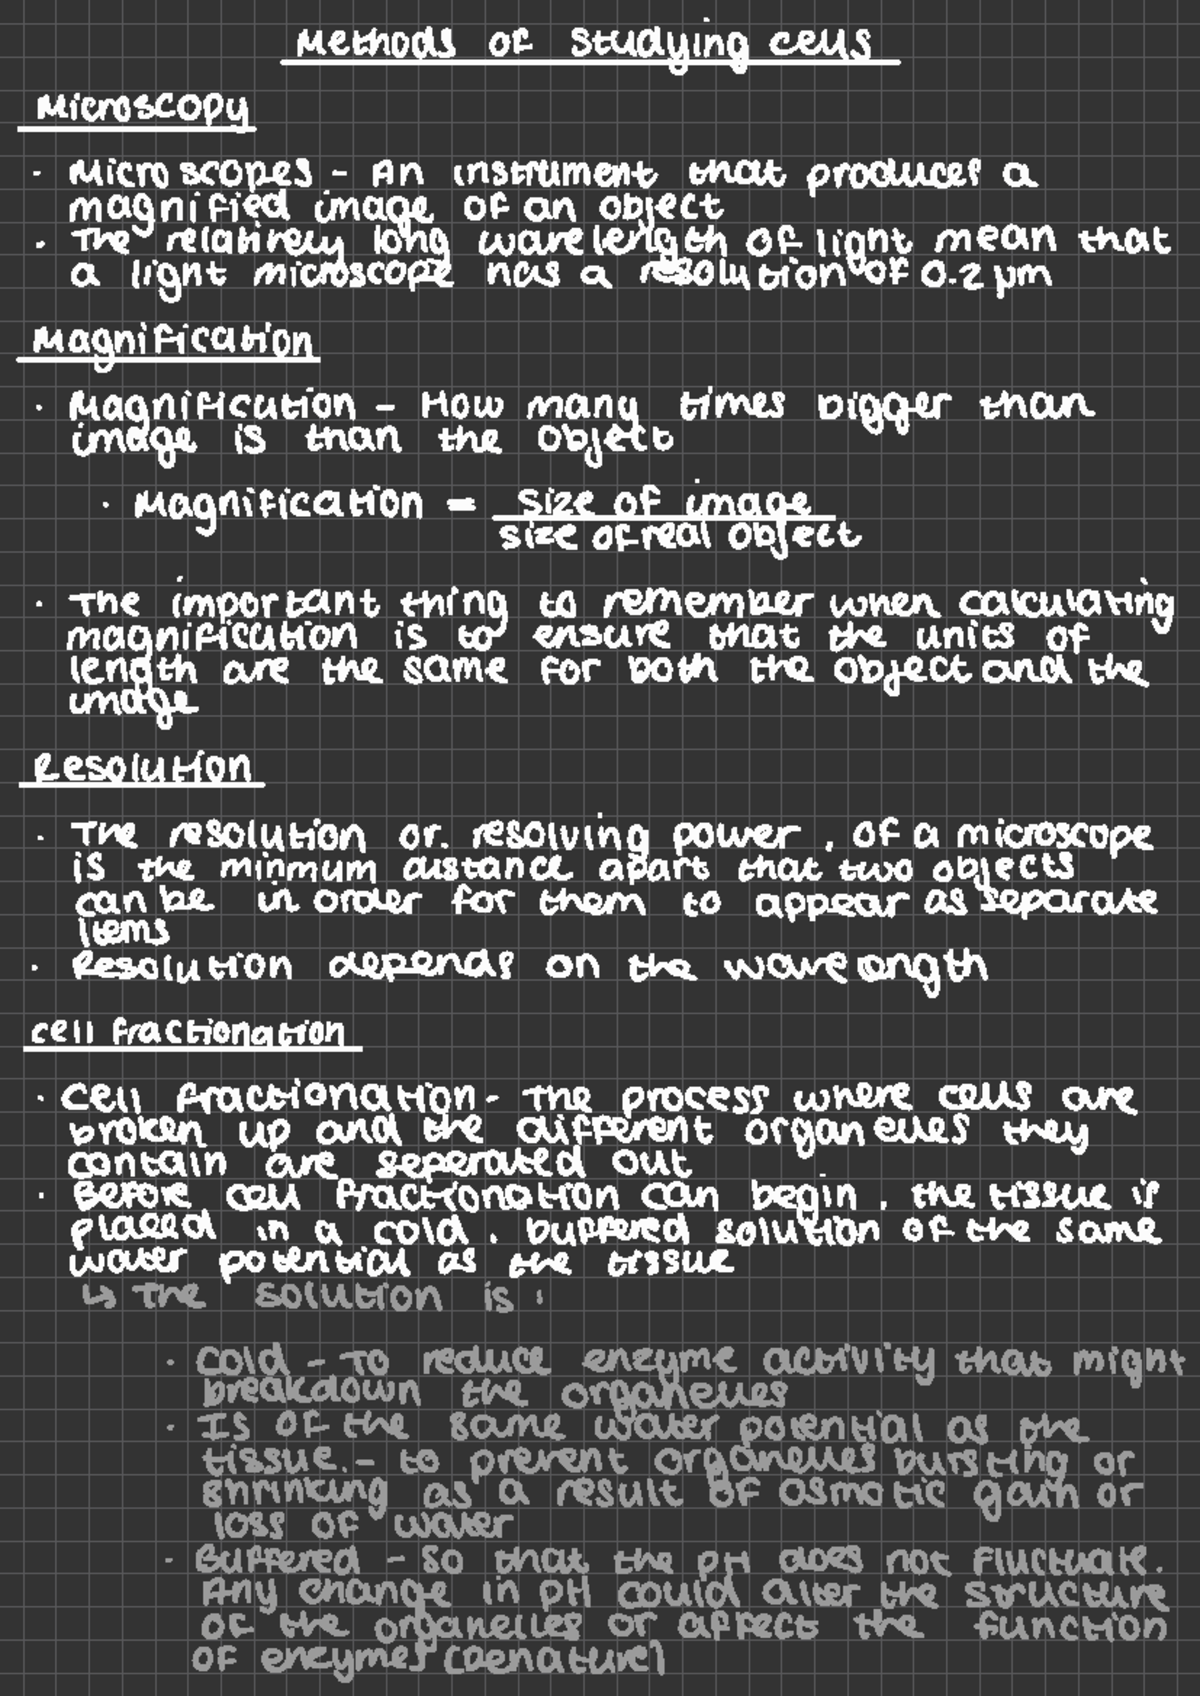 Methods of studying cells
Microscopy
· Microscopes - An instrument that produces a
magnified image of an object
· The relatively long wavelength of light mean that
a light microscope has a resolution of 0.2 μm
Magnification
· Magnification - How many times bigger than
image is than the object
· Magnification = size of image
size of real object
· The important thing to remember when calculating
magnification is to ensure that the units of
length are the same for both the object and the
image
Resolution
· The resolution or. resolving power , of a microscope
is the minmum distance apart that two objects
can be in order for them to appear as separate
items
· Resolution depends on the wavelength
cell fractionation
· Cell fractionation - The process where cells are
broken up and the different organelles they
contain are seperated out
· Before cell fractionation can begin , the tissue is
placed in a cold , buffered solution of the same
water potential as the tissue
↳ The solution is :
· Cold - To reduce enzyme activity that might
breakdown the organelles
· Is of the same water potential as the
tissue. - to prevent organelles bursting or
shrinking as a result of osmotic gain or
loss of water
· Buffered - So that the pH does not fluctuate.
Any change in pH could alter the structure
of the organelles or affect the function
of enzymes (Denature)